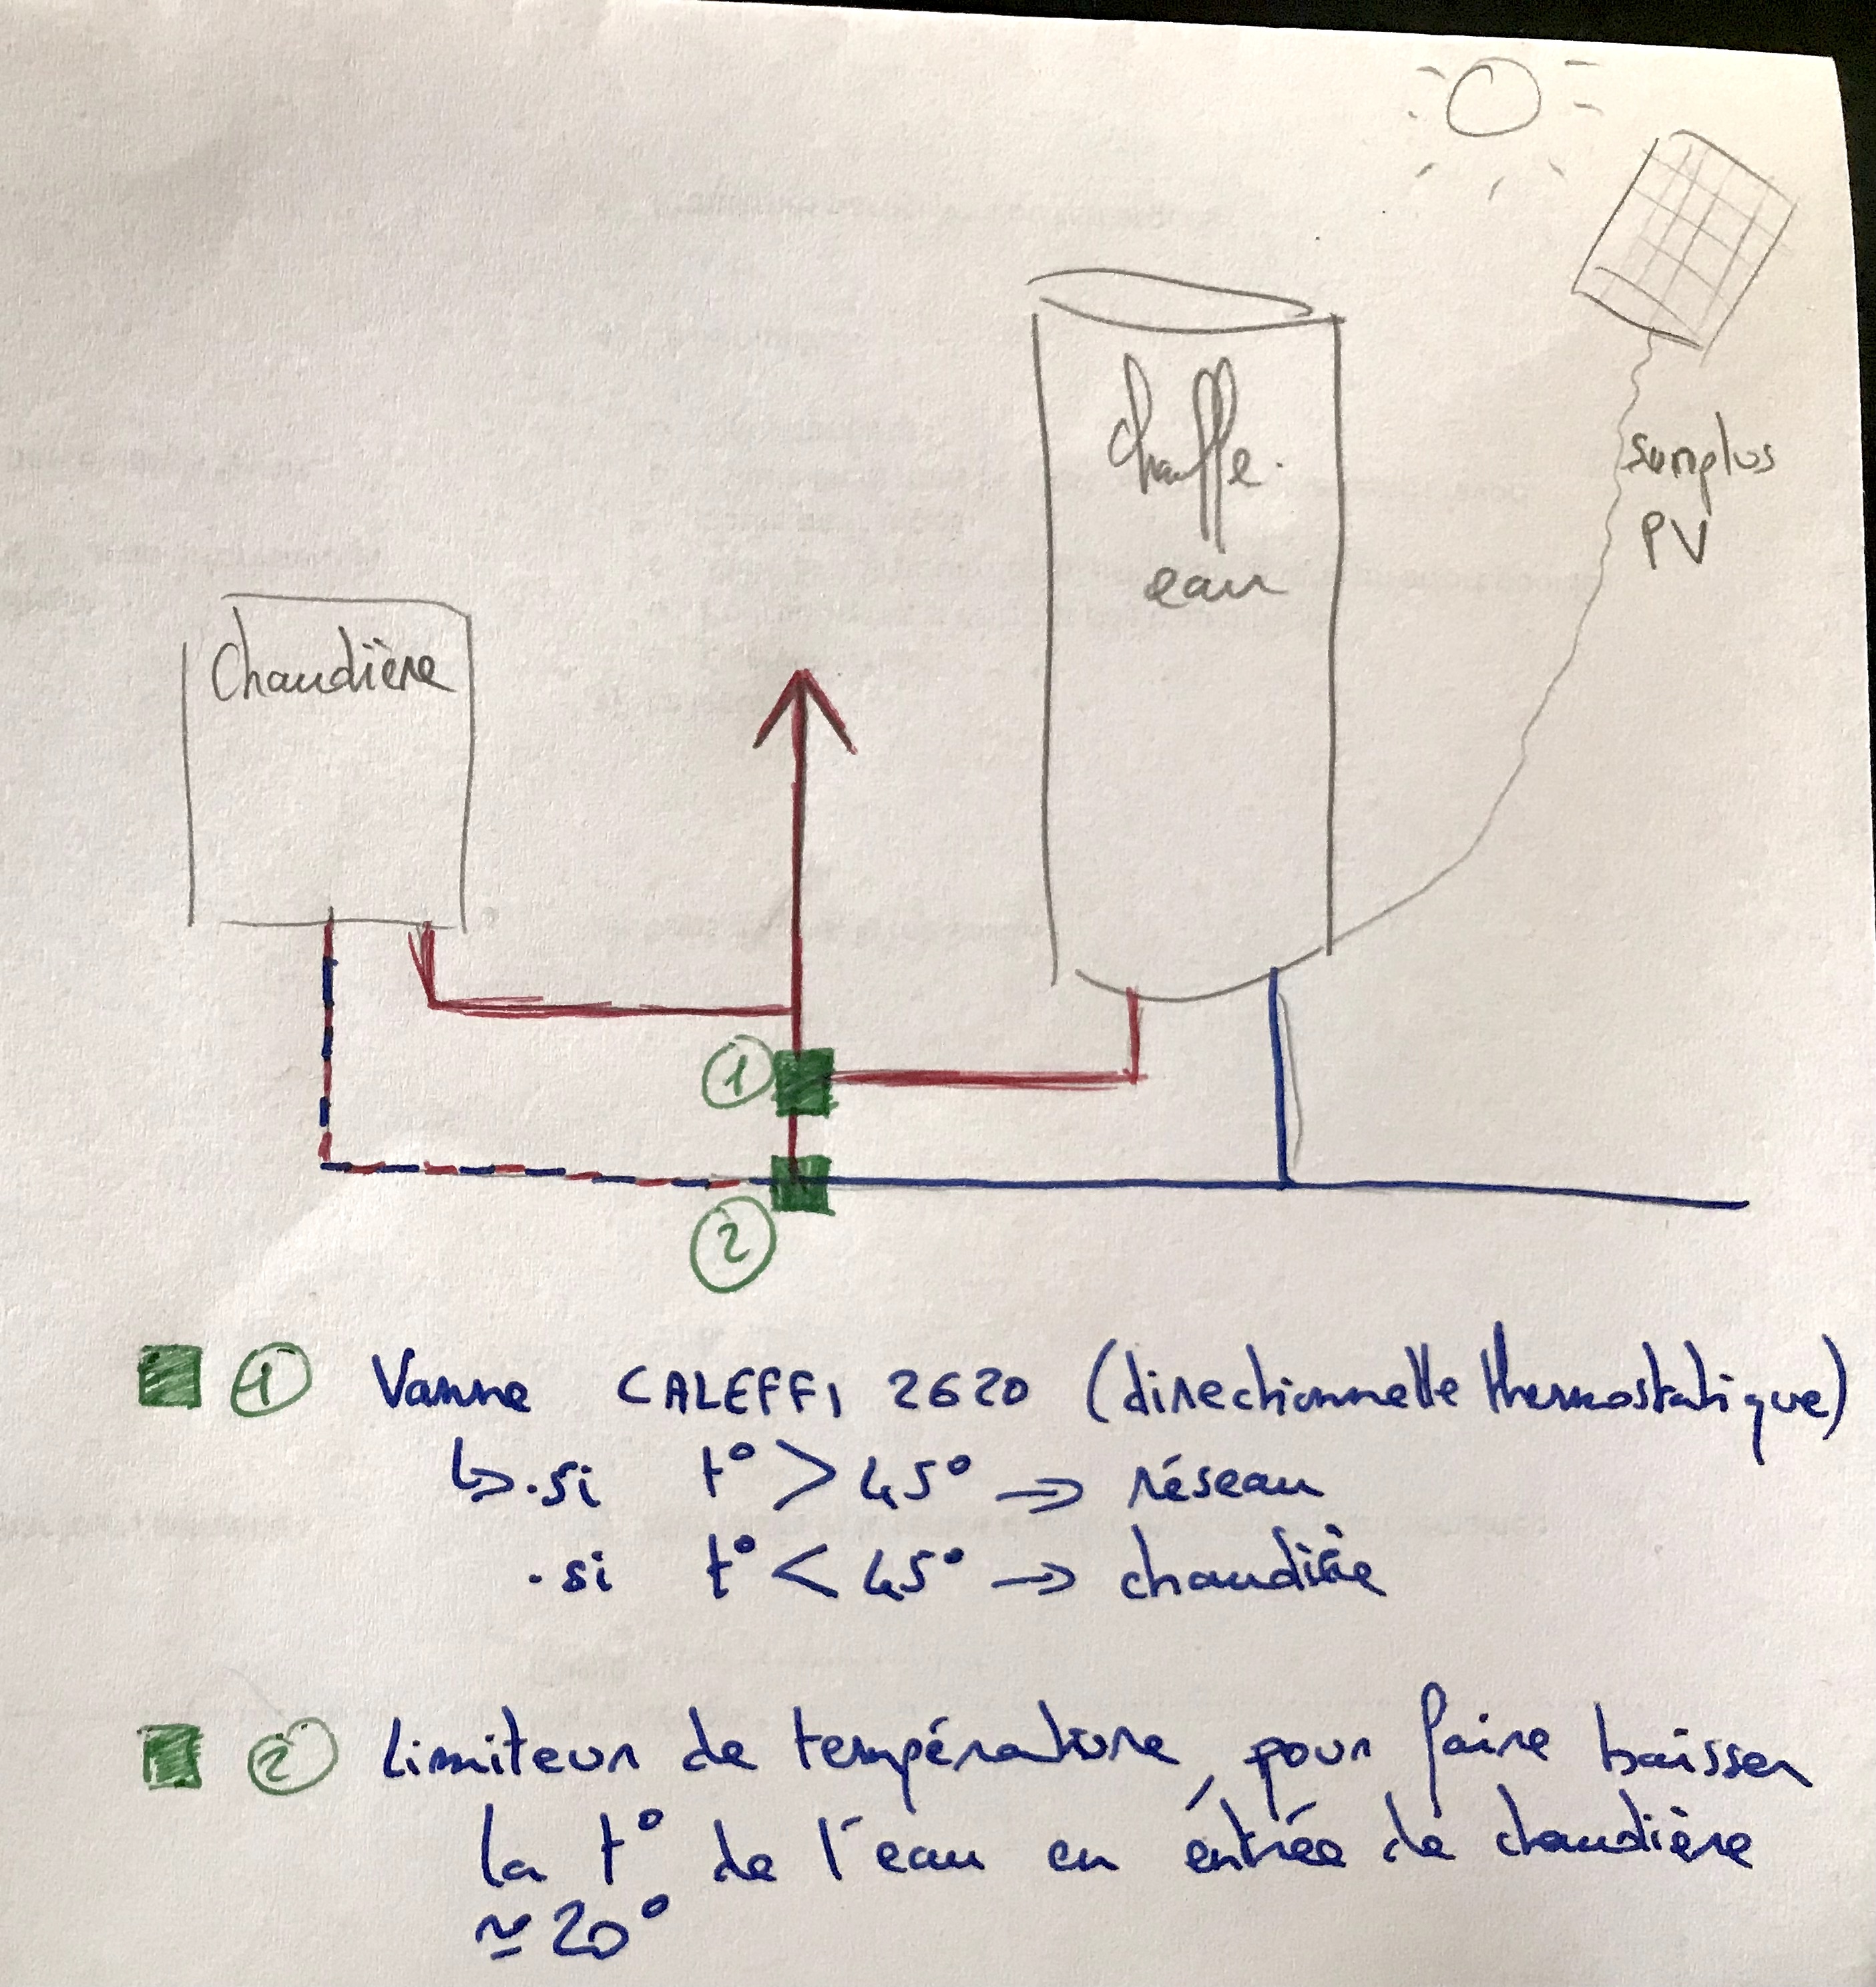 surplus
PV
Chauffe-
eau
Chaudière
1
2
1 Vanne CALEFFI 2620 (directionnelle thermostatique)
↳ . si t° > 45° → réseau
. si t° < 45° → chaudière
2 Limiteur de température, pour faire baisser
la t° de l'eau en entrée de chaudière
≃ 20°